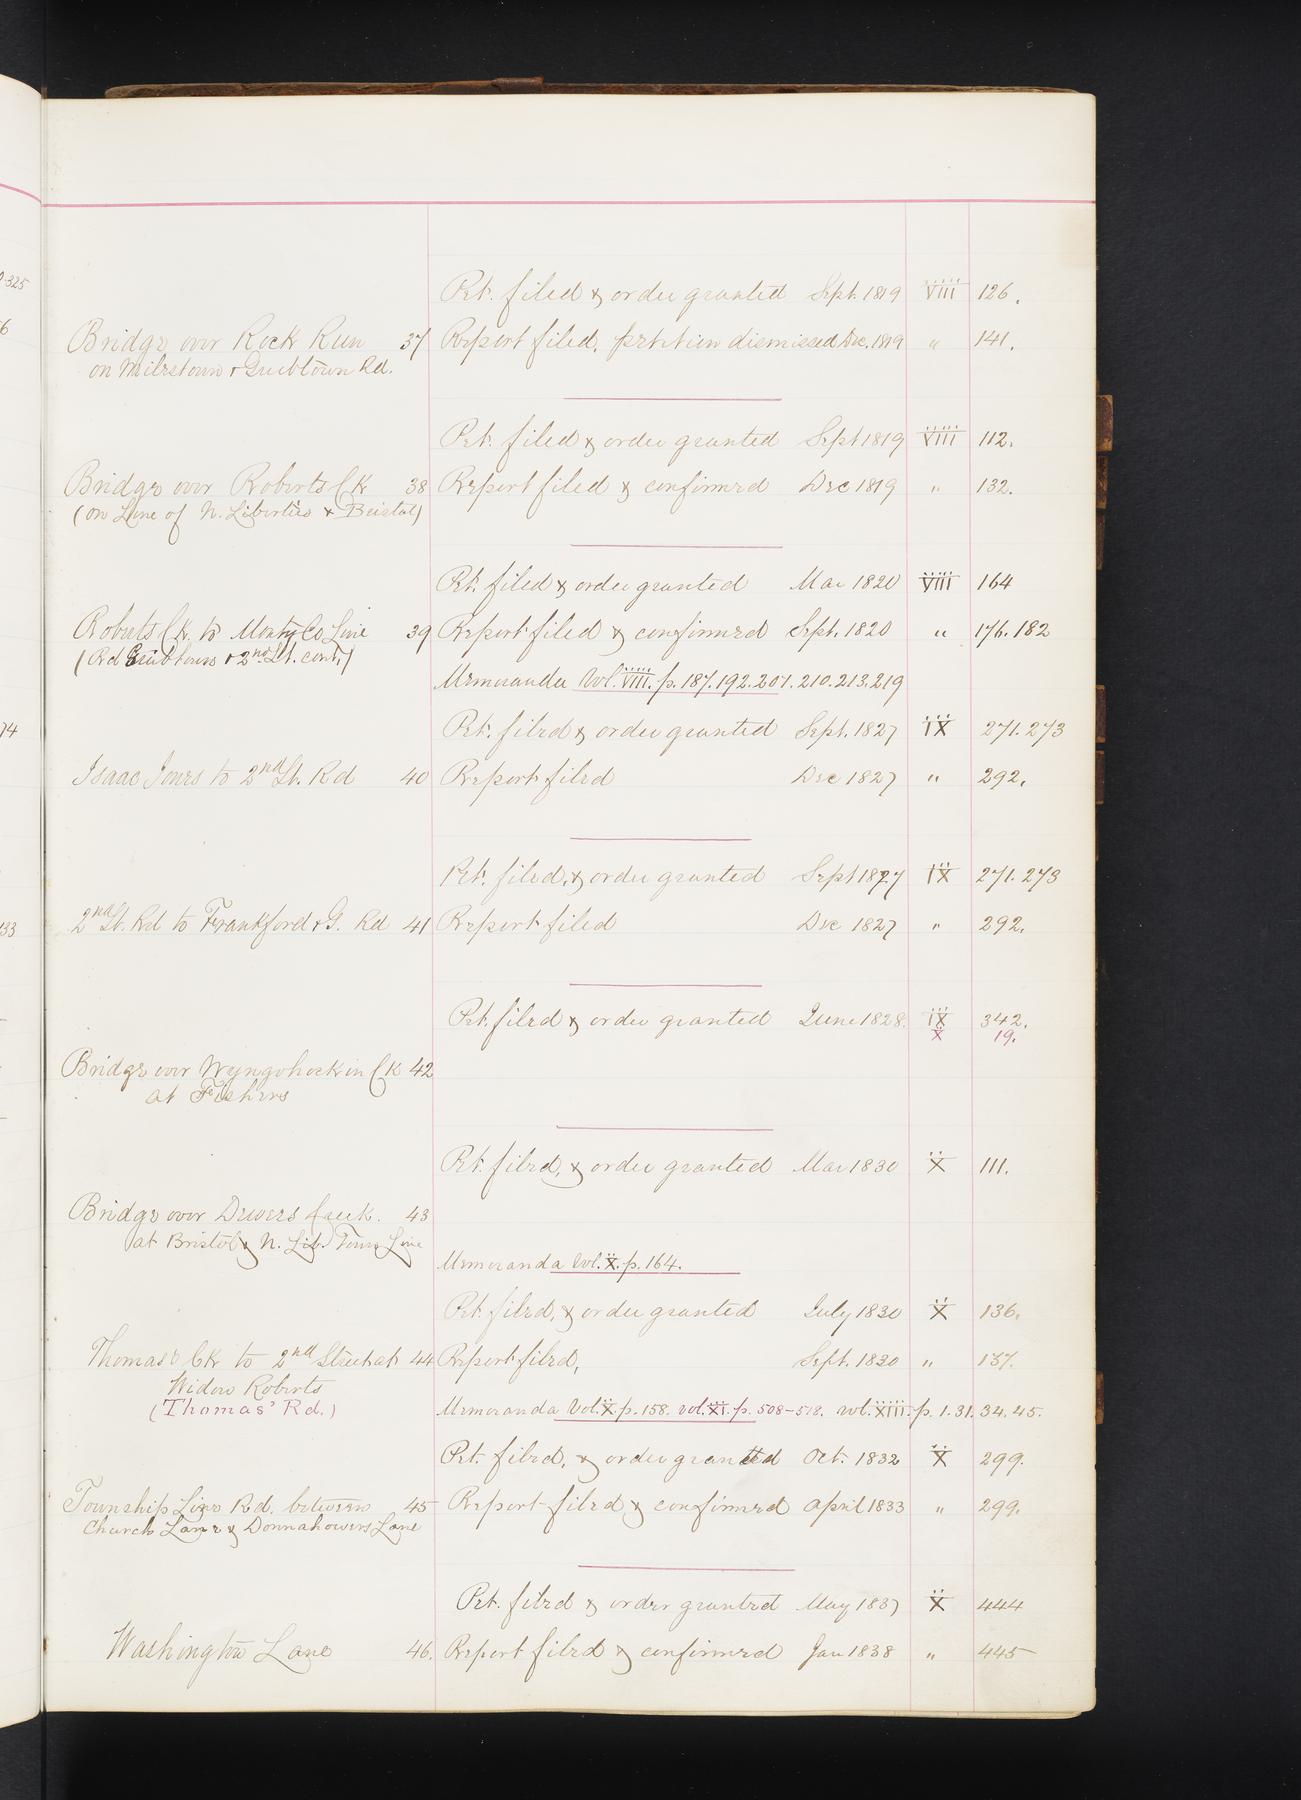 0.325
6
74
133
Pet. filed & order granted Sept. 1819 VIII 126.
Bridge over Rock Run 37 Report filed, petition dismissed Dec. 1819 " 141.
on Milestown & Grubtown Rd.
Pet. filed & order granted Sept 1819 VIII 112.
Bridge over Roberts Ck 38 Report filed & confirmed Dec 1819 " 132.
(on Line of N. Liberties & Bristol)
Pet. filed & order granted Mar 1820 VIII 164
Roberts Ck. to Montg Co Line 39 Report filed & confirmed Sept. 1820 " 176. 182
(Rd Grubtown & 2nd St. cont.)
Memoranda Vol. VIII. p. 187. 192. 207. 210. 213. 219
Pet. filed & order granted Sept. 1827 IX 271. 273
Isaac Jones to 2nd St. Rd 40 Report filed Dec 1827 " 292.
Pet. filed, & order granted Sept 1827 IX 271. 273
2nd St. Rd to Frankford & G. Rd 41 Report filed Dec 1827 " 292.
Pet. filed & order granted June 1828. IX 342.
X 19.
Bridge over Wyngohockin Ck 42
at Fishers
Pet. filed, & order granted Mar 1830 X 111.
Bridge over Dewers Creek. 43
at Bristol & N. Lib. Town Line
Memoranda Vol. X. p. 164.
Pet. filed, & order granted July 1830 X 136.
Thomas's Ck to 2nd Street at 44 Report filed, Sept. 1830 " 137.
Widow Roberts
(Thomas' Rd.)
Memoranda Vol. X p. 158. vol. XI. p. 508-518. vol. XIII. p. 1. 31. 34. 45.
Pet. filed, & order granted Oct. 1832 X 299.
Township Line Rd. between 45 Report filed & confirmed April 1833 " 299.
Church Lane & Donnahowers Lane
Pet. filed & order granted May 1837 X 444
Washington Lane 46. Report filed & confirmed Jan 1838 " 445